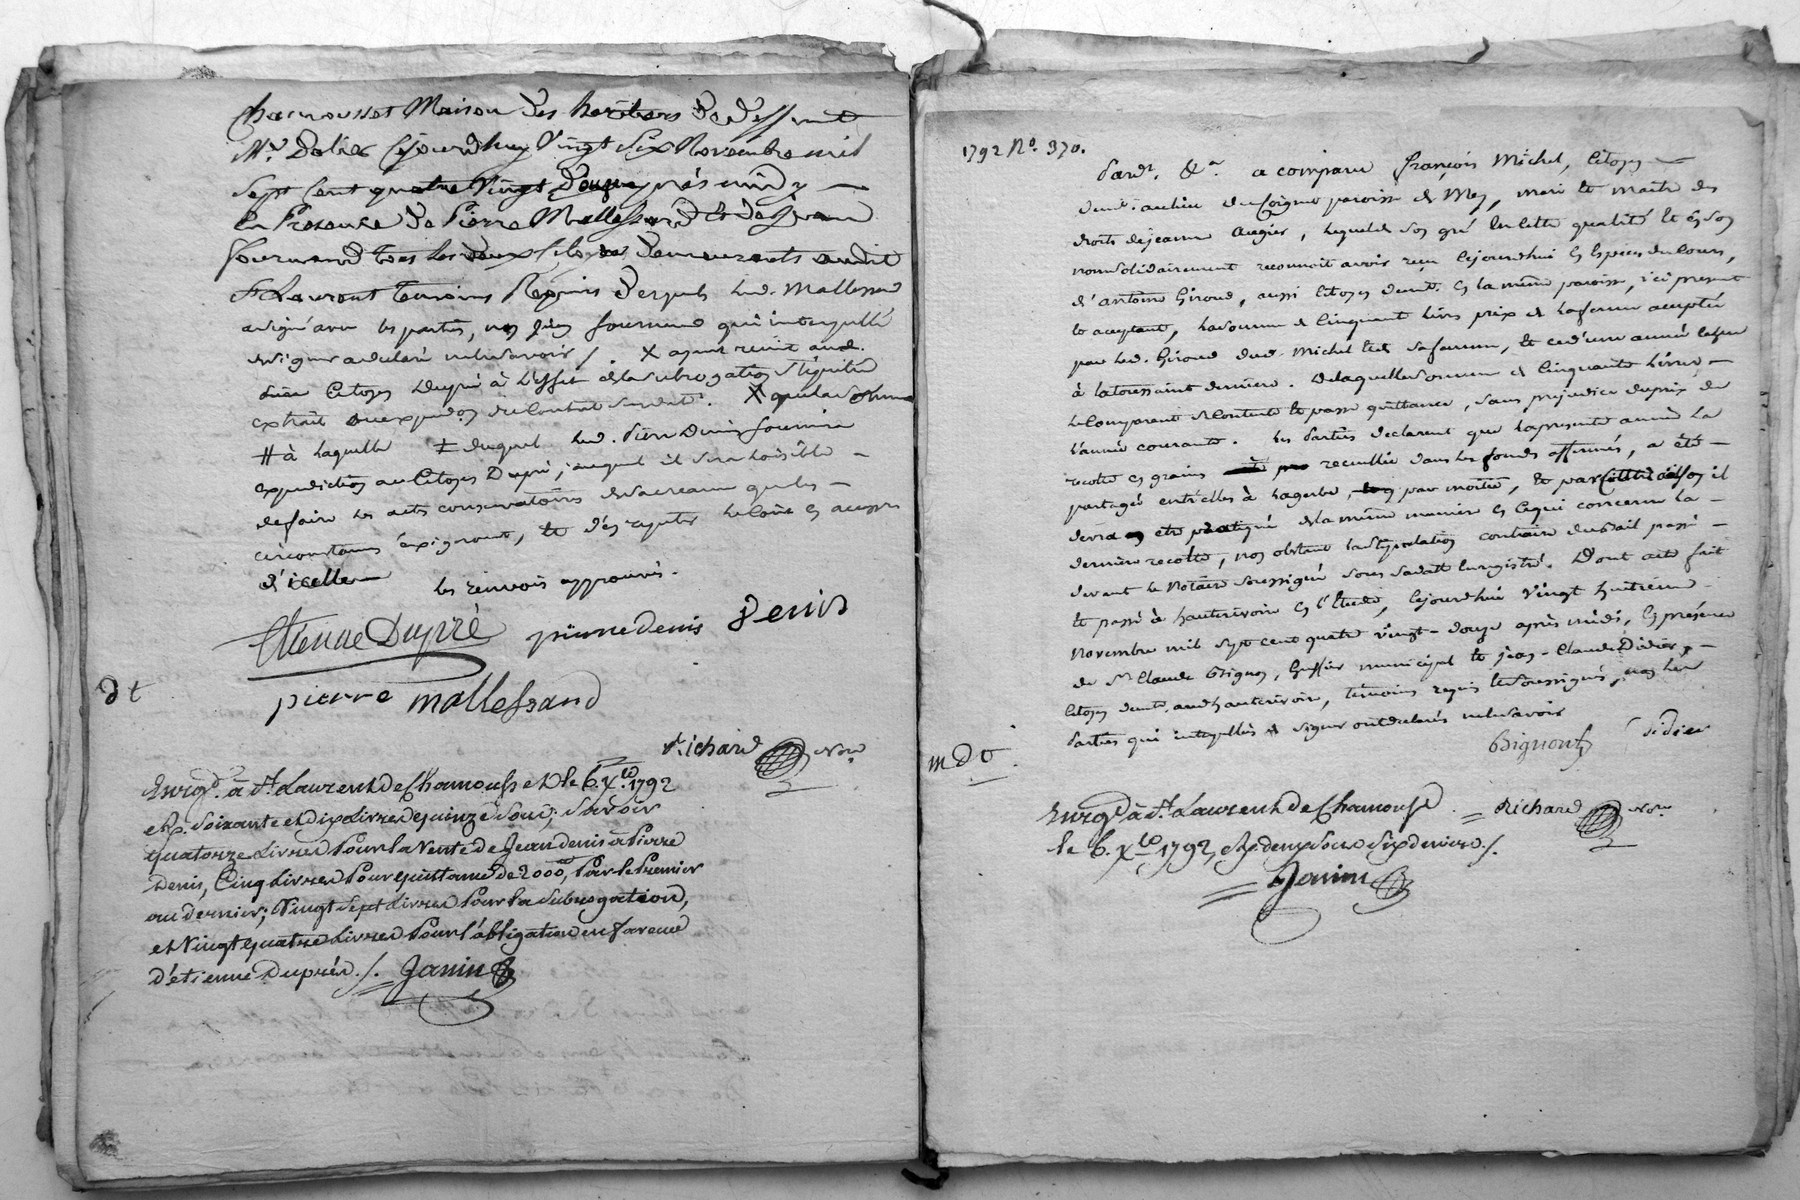 Chamousset Maison des heritiers de deffunt
Mr. Dolier cejourdhuy Vingt Six Novembre mil
Sept Cent quatre Vingt Douze après midy
En Presence de Pierre Mallessard et de Jean
fournand tous les deux Citoyens demeurants audit
St Laurent temoins Requis desquels led. Mallessard
a signé avec les parties, non Jean fournand qui interpellé
de signer a declaré ne le savoir /. X ayant remit aud.
Citoyen Dupré à l'effet de la subrogation Stipulée
extrait ou expedition du Contrat susdatté. X que la somme
# à laquelle ‡ duquel led. Pierre Denis fournira
expedition au Citoyen Dupré, auquel il sera loisible
de faire les actes conservatoires de sa creance que les
circonstances exigeront, et d'en repeter le coût en accessoires
d'icelle les renvois approuvés.
Etienne Dupré pierre denis Denis
dt
pierre mallessard
Richard Nore
Enregé. à St. Laurent de Chamousset le 6 Xbre 1792
et R. Soixante et dix Livres quinze Sous; Savoir
quatorze Livres Pour la Vente de Jean denis à Pierre
Denis, Cinq Livres Pour quittance de 2000, Par le Premier
au dernier; Vingt Sept Livres Pour la Subrogation,
et Vingt quatre Livres Pour l'obligation en faveur
d'étienne Duprés /. Janin
1792 No. 370.
Pardt. &a. a comparu françois Michel, Citoyen
demt. au lieu du Coignet paroisse de Meys, mari et maitre des
droits de jeanne Augier, lequel de son gré en cette qualité et en son
nom solidairement reconnoit avoir reçu cejourdhui en Especes du Cours,
d'antoine Giroud, aussi Citoyen demt. en la même paroisse, ici present
et acceptant, la somme de Cinquante livres prix de la ferme acceptée
par led. Giroud dud. Michel et sa femme, et ce d'une année echue
à la toussaint derniere. De laquelle somme de Cinquante livres
le Comparant se Contente et passe quittance, sans prejudice du prix de
l'année courante. Les Parties declarent que la presente année la
recolte en grains recueillie dans les fonds affermés, a été
partagée entr'elles à la gerbe, par moitié, et par Cette raison il
devra en etre pratiqué de la même maniere en ce qui concerne la
derniere recolte, non obstant la stipulation contraire du bail passé
devant le Notaire soussigné sous sa datte Enregistré. Dont acte fait
et passé à hauterivoire en l'étude, cejourdhui vingt huitieme
Novembre mil sept cent quatre vingt-douze après midi, En présence
de Sr. Claude Bignon, Greffier municipal et jean-Claude Didier,
Citoyen demt. aud. hauterivoire, temoins requis et soussignés, non les
Parties qui interpellées de signer ont declarés ne le savoir
Bignon Didier
mdv
Richard Nore
Enregé à St. Laurent de Chamousset
le 6. Xbre 1792, et R. deux Sous Six deniers /.
Janin